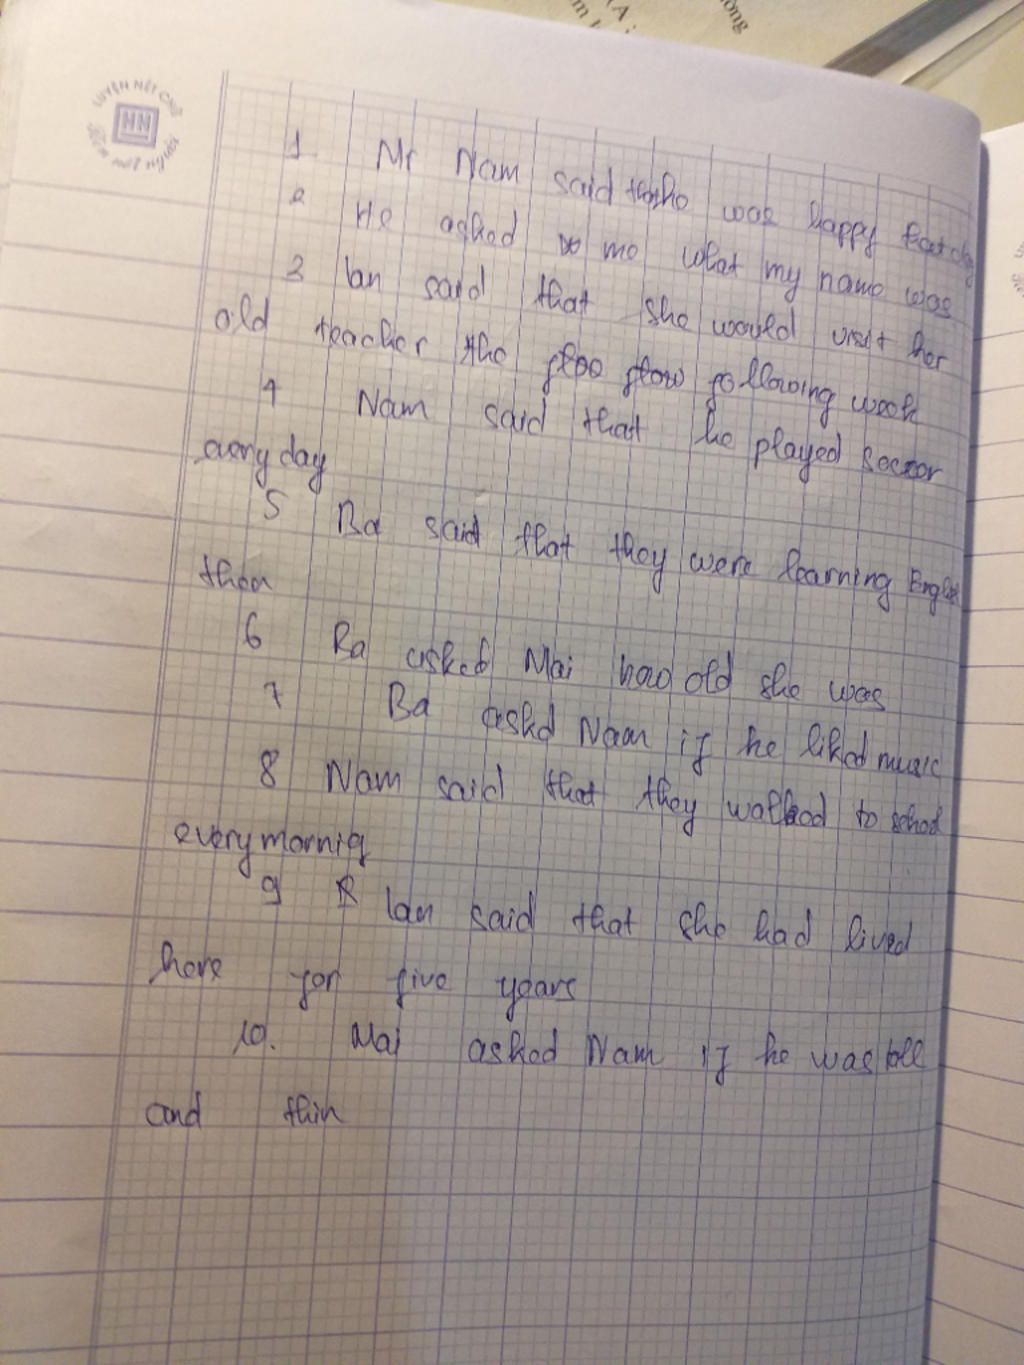 LUYỆN NÉT CHỮ
HN
1 Mr Nam said was happy that day
2 He asked me what my name was
3 lan said that she would visit her
old teacher the following week
4 Nam said that he played soccor
every day
5 Ba said that they were learning
then
6 Ba asked Mai how old she was
7 Ba askd Nam if he liked music
8 Nam said that they walked to school
every mornig
9 lan said that she had lived
here for five years
10. Mai asked Nam if he was tall
and thin